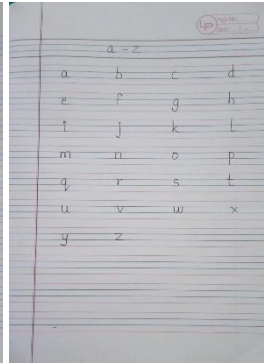 a-z
a b c d
e f g h
i j k l
m n o p
q r s t
u v w x
y z